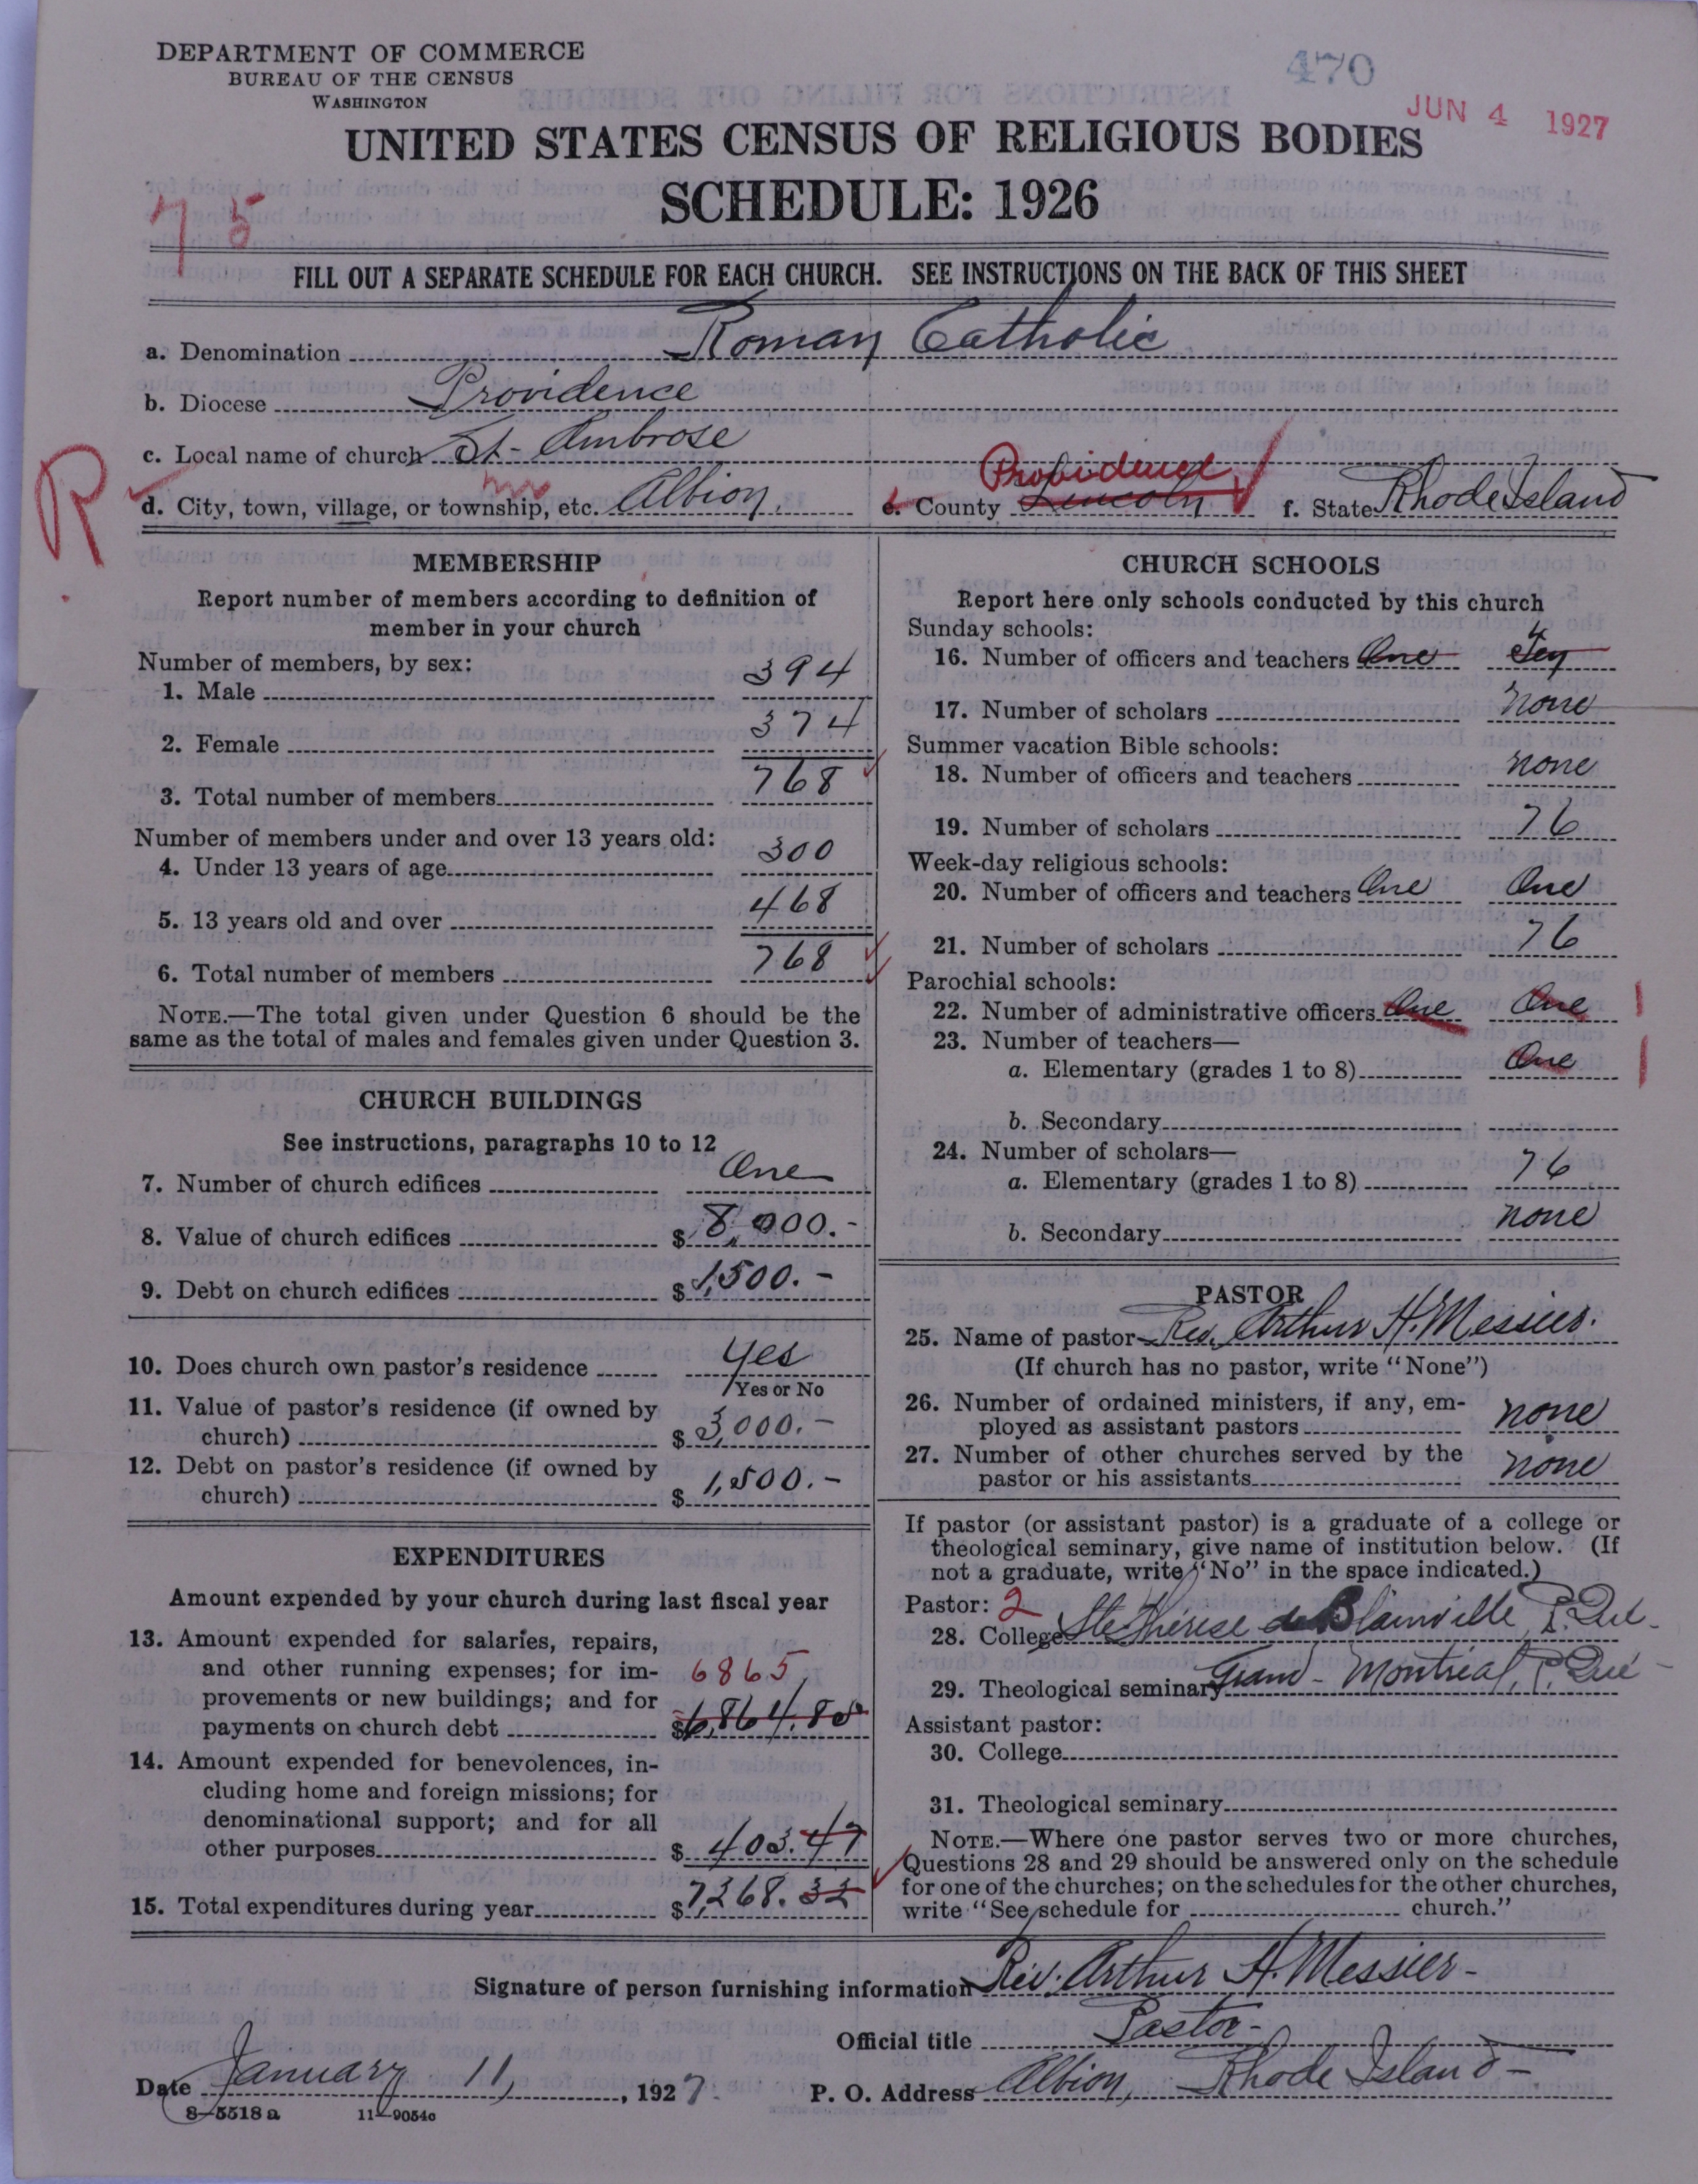 DEPARTMENT OF COMMERCE
BUREAU OF THE CENSUS
WASHINGTON
470
JUN 4 1927
UNITED STATES CENSUS OF RELIGIOUS BODIES
SCHEDULE: 1926
75
FILL OUT A SEPARATE SCHEDULE FOR EACH CHURCH. SEE INSTRUCTIONS ON THE BACK OF THIS SHEET
a. Denomination Roman Catholic
b. Diocese Providence
c. Local name of church St- Ambrose
R
Providence
d. City, town, village, or township, etc. Albion. e. County Lincoln f. State Rhode Island
MEMBERSHIP
Report number of members according to definition of
member in your church
Number of members, by sex:
1. Male 394
2. Female 374
3. Total number of members 768
Number of members under and over 13 years old:
4. Under 13 years of age 300
5. 13 years old and over 468
6. Total number of members 768
NOTE.—The total given under Question 6 should be the
same as the total of males and females given under Question 3.
CHURCH BUILDINGS
See instructions, paragraphs 10 to 12
7. Number of church edifices One
8. Value of church edifices $ 8,000.-
9. Debt on church edifices $ 1,500.-
10. Does church own pastor's residence Yes
Yes or No
11. Value of pastor's residence (if owned by
church) $ 3,000.-
12. Debt on pastor's residence (if owned by
church) $ 1,500.-
EXPENDITURES
Amount expended by your church during last fiscal year
13. Amount expended for salaries, repairs,
and other running expenses; for im- 6865
provements or new buildings; and for
payments on church debt $ 6,864.85
14. Amount expended for benevolences, in-
cluding home and foreign missions; for
denominational support; and for all
other purposes $ 403.47
15. Total expenditures during year $ 7,268.32
CHURCH SCHOOLS
Report here only schools conducted by this church
Sunday schools:
16. Number of officers and teachers One
17. Number of scholars none
Summer vacation Bible schools:
18. Number of officers and teachers none
19. Number of scholars 76
Week-day religious schools:
20. Number of officers and teachers One One
21. Number of scholars 76
Parochial schools:
22. Number of administrative officers One One 1
23. Number of teachers—
a. Elementary (grades 1 to 8) One 1
b. Secondary
24. Number of scholars—
a. Elementary (grades 1 to 8) 76
b. Secondary none
PASTOR
25. Name of pastor Rev. Arthur H. Messier.
(If church has no pastor, write "None")
26. Number of ordained ministers, if any, em-
ployed as assistant pastors none
27. Number of other churches served by the
pastor or his assistants none
If pastor (or assistant pastor) is a graduate of a college or
theological seminary, give name of institution below. (If
not a graduate, write "No" in the space indicated.)
Pastor: 2
28. College Ste Thérèse de Blainville, P. Qué-
29. Theological seminary Grand - Montréal, P. Qué-
Assistant pastor:
30. College
31. Theological seminary
NOTE.—Where one pastor serves two or more churches,
Questions 28 and 29 should be answered only on the schedule
for one of the churches; on the schedules for the other churches,
write "See schedule for church."
Signature of person furnishing information Rev. Arthur H. Messier-
Official title Pastor-
Date January 11, 1927. P. O. Address Albion, Rhode Island-
8—5518 a 11—9054c